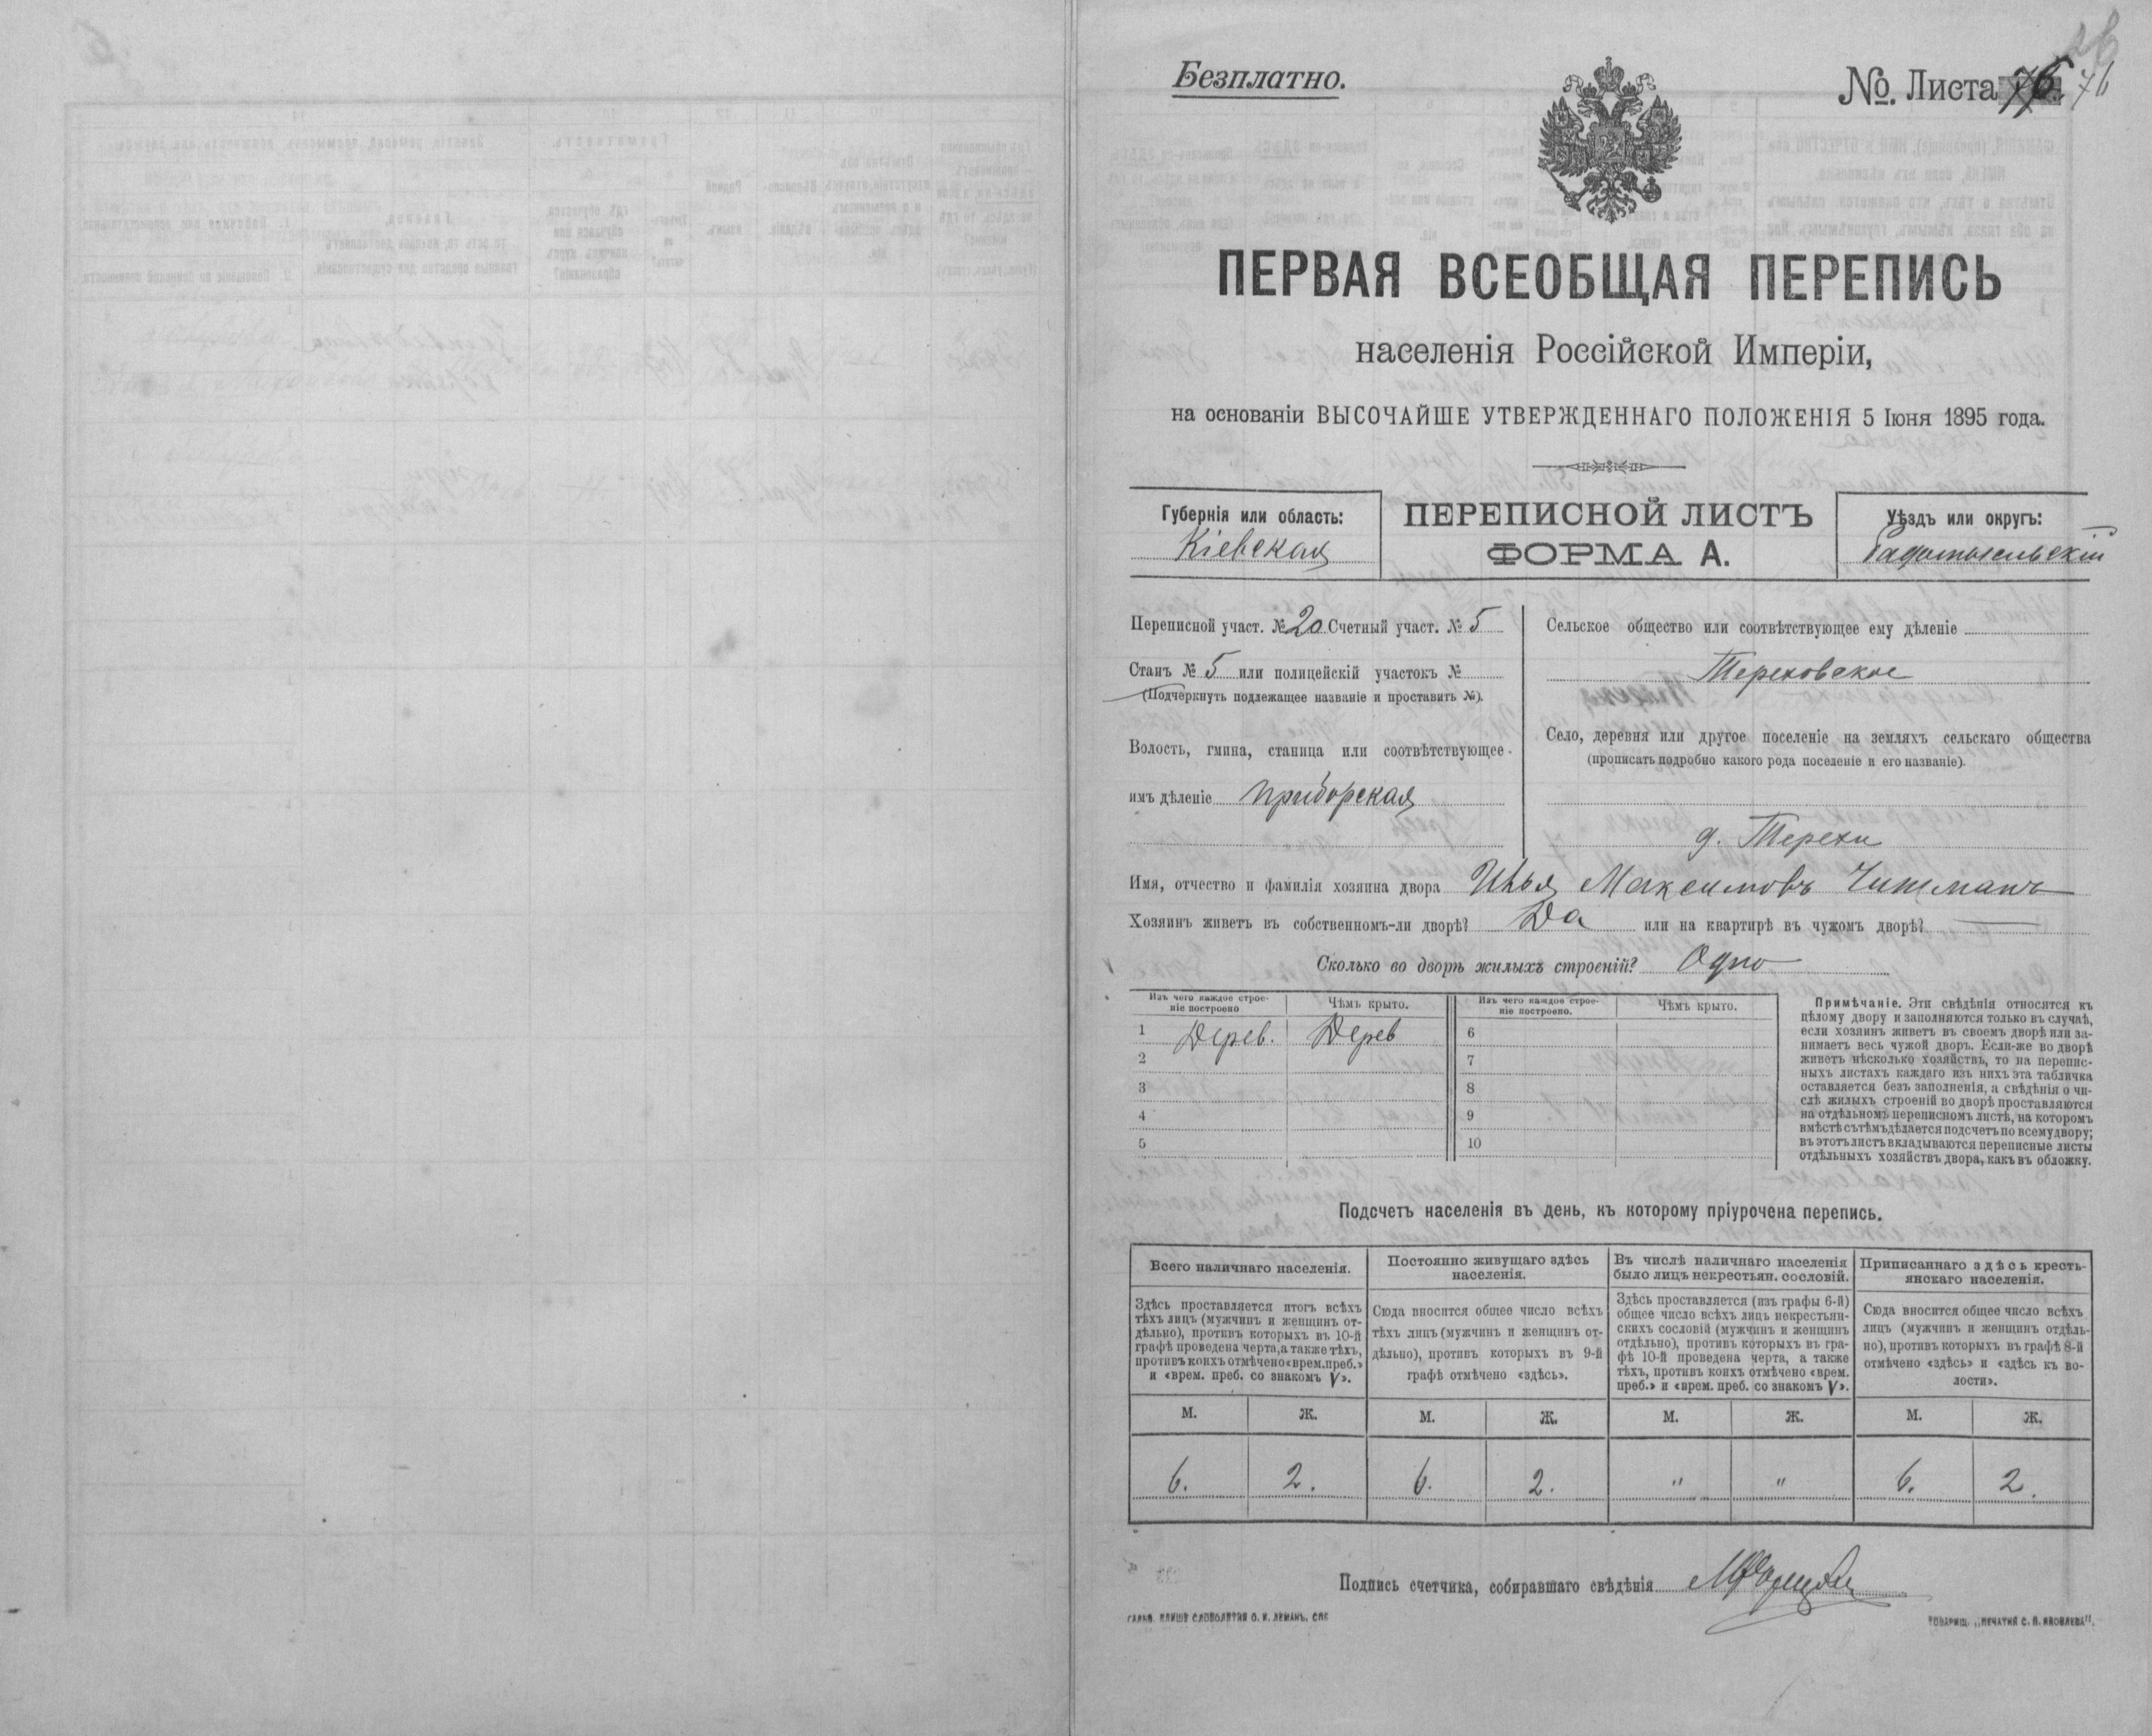 Безплатно.
№. Листа 76. 76
ПЕРВАЯ ВСЕОБЩАЯ ПЕРЕПИСЬ
населенія Россійской Имперіи,
на основаніи ВЫСОЧАЙШЕ УТВЕРЖДЕННАГО ПОЛОЖЕНІЯ 5 Іюня 1895 года.
Губернія или область:
Кіевская
ПЕРЕПИСНОЙ ЛИСТЪ
ФОРМА А.
Уѣздъ или округъ:
Радомысльскій
Переписной участ. № 20 Счетный участ. № 5
Станъ № 5 или полицейскій участокъ №
(Подчеркнуть подлежащее названіе и проставить №).
Волость, гмина, станица или соотвѣтствующее
имъ дѣленіе Приборская
Сельское общество или соотвѣтствующее ему дѣленіе
Тереховское
Село, деревня или другое поселеніе на земляхъ сельскаго общества
(прописать подробно какого рода поселеніе и его названіе).
д. Терехи
Имя, отчество и фамилія хозяина двора Илья Максимовъ
Хозяинъ живетъ въ собственномъ-ли дворѣ? Да или на квартирѣ въ чужомъ дворѣ? —
Сколько во дворѣ жилыхъ строеній? Одно
Изъ чего каждое строе-
ніе построено
Чѣмъ крыто.
Изъ чего каждое строе-
ніе построено.
Чѣмъ крыто.
1 Дерев. Дерев 6
2 7
3 8
4 9
5 10
Примѣчаніе. Эти свѣдѣнія относятся къ
цѣлому двору и заполняются только въ случаѣ,
если хозяинъ живетъ въ своемъ дворѣ или за-
нимаетъ весь чужой дворъ. Если-же во дворѣ
живетъ нѣсколько хозяйствъ, то на перепис-
ныхъ листахъ каждаго изъ нихъ эта табличка
оставляется безъ заполненія, а свѣдѣнія о чи-
слѣ жилыхъ строеній во дворѣ проставляются
на отдѣльномъ переписномъ листѣ, на которомъ
вмѣстѣ съ тѣмъ дѣлается подсчетъ по всему двору;
въ этотъ листъ вкладываются переписные листы
отдѣльныхъ хозяйствъ двора, какъ въ обложку.
Подсчетъ населенія въ день, къ которому пріурочена перепись.
Всего наличнаго населенія.
Постоянно живущаго здѣсь
населенія.
Въ числѣ наличнаго населенія
было лицъ некрестьян. сословій.
Приписаннаго здѣсь кресть-
янскаго населенія.
Здѣсь проставляется итогъ всѣхъ
тѣхъ лицъ (мужчинъ и женщинъ от-
дѣльно), противъ которыхъ въ 10-й
графѣ проведена черта, а также тѣхъ,
противъ коихъ отмѣчено «врем. преб.»
и «врем. преб. со знакомъ V».
Сюда вносится общее число всѣхъ
тѣхъ лицъ (мужчинъ и женщинъ от-
дѣльно), противъ которыхъ въ 9-й
графѣ отмѣчено «здѣсь».
Здѣсь проставляется (изъ графы 6-й)
общее число всѣхъ лицъ некрестьян-
скихъ сословій (мужчинъ и женщинъ
отдѣльно), противъ которыхъ въ гра-
фѣ 10-й проведена черта, а также
тѣхъ, противъ коихъ отмѣчено «врем.
преб.» и «врем. преб. со знакомъ V».
Сюда вносится общее число всѣхъ
лицъ (мужчинъ и женщинъ отдѣль-
но), противъ которыхъ въ графѣ 8-й
отмѣчено «здѣсь» и «здѣсь къ во-
лости».
М. Ж. М. Ж. М. Ж. М. Ж.
6. 2. 6. 2. " " 6. 2.
Подпись счетчика, собиравшаго свѣдѣнія
ГАЛЬВ. КЛИШЕ СЛОВОЛИТНИ О. И. ЛЕМАНЪ, СПБ
ТОВАРИЩ. „ПЕЧАТНЯ С. П. ЯКОВЛЕВА".